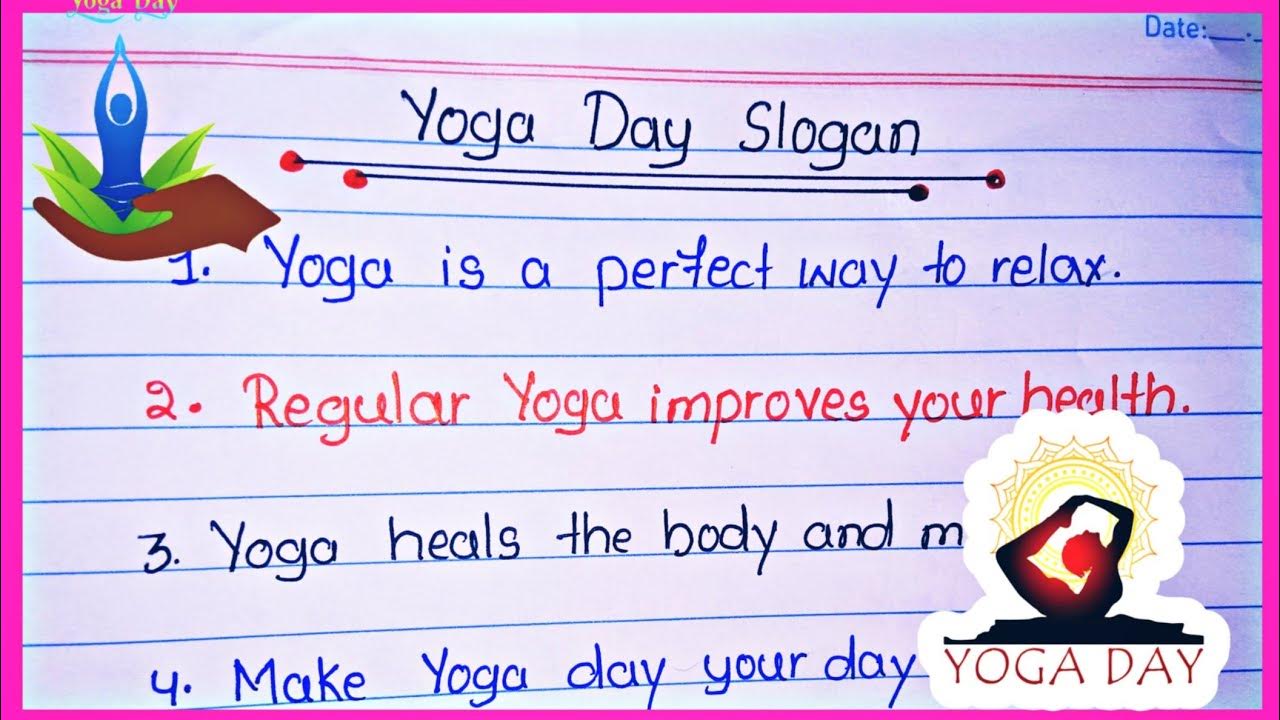 Yoga Day
Date:
Yoga Day Slogan
1. Yoga is a perfect way to relax.
2. Regular Yoga improves your health.
3. Yoga heals the body and m
4. Make Yoga day your day
YOGA DAY